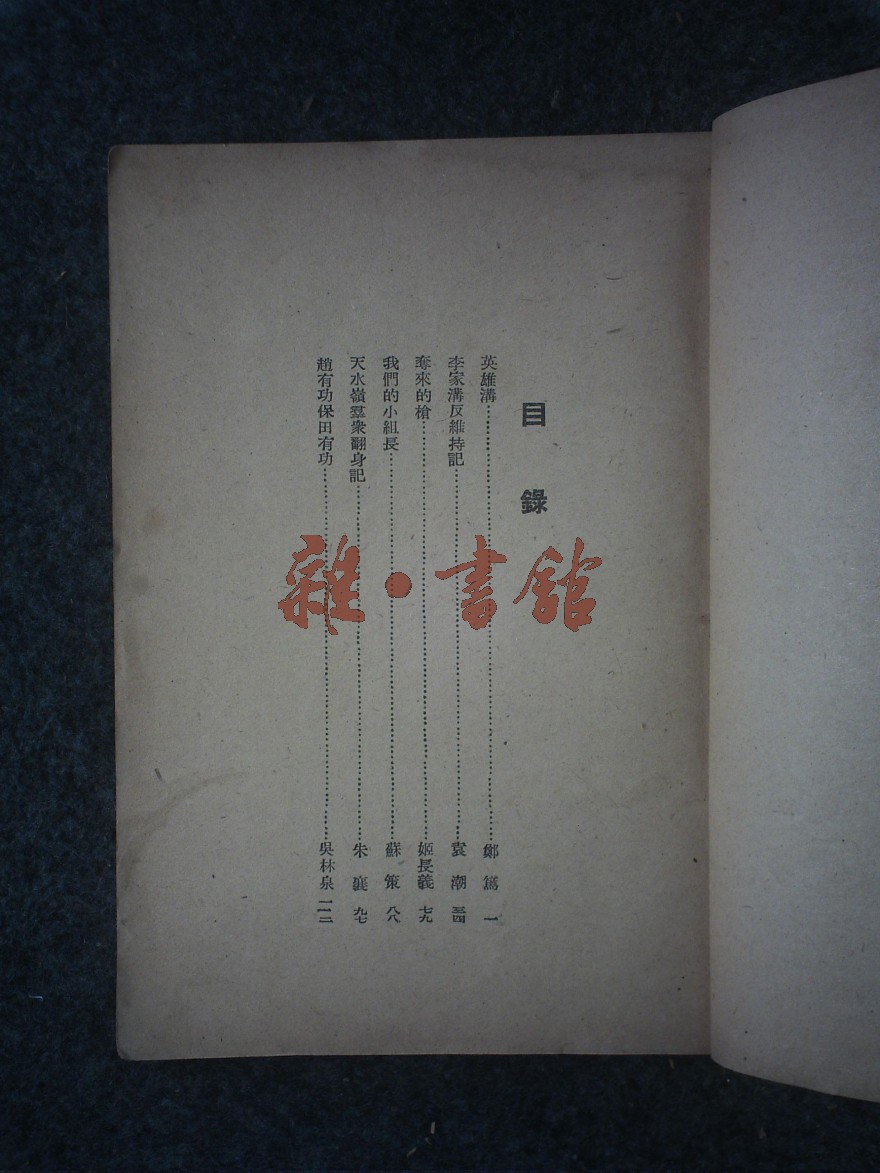 目錄
英雄溝……鄭篤 一
李家溝反維持記……袁潮
奪來的槍……姬長義 七九
我們的小組長……蘇策 八八
天水嶺羣衆翻身記……朱襄 九七
趙有功保田有功……吳林泉 一一二
雜•書館